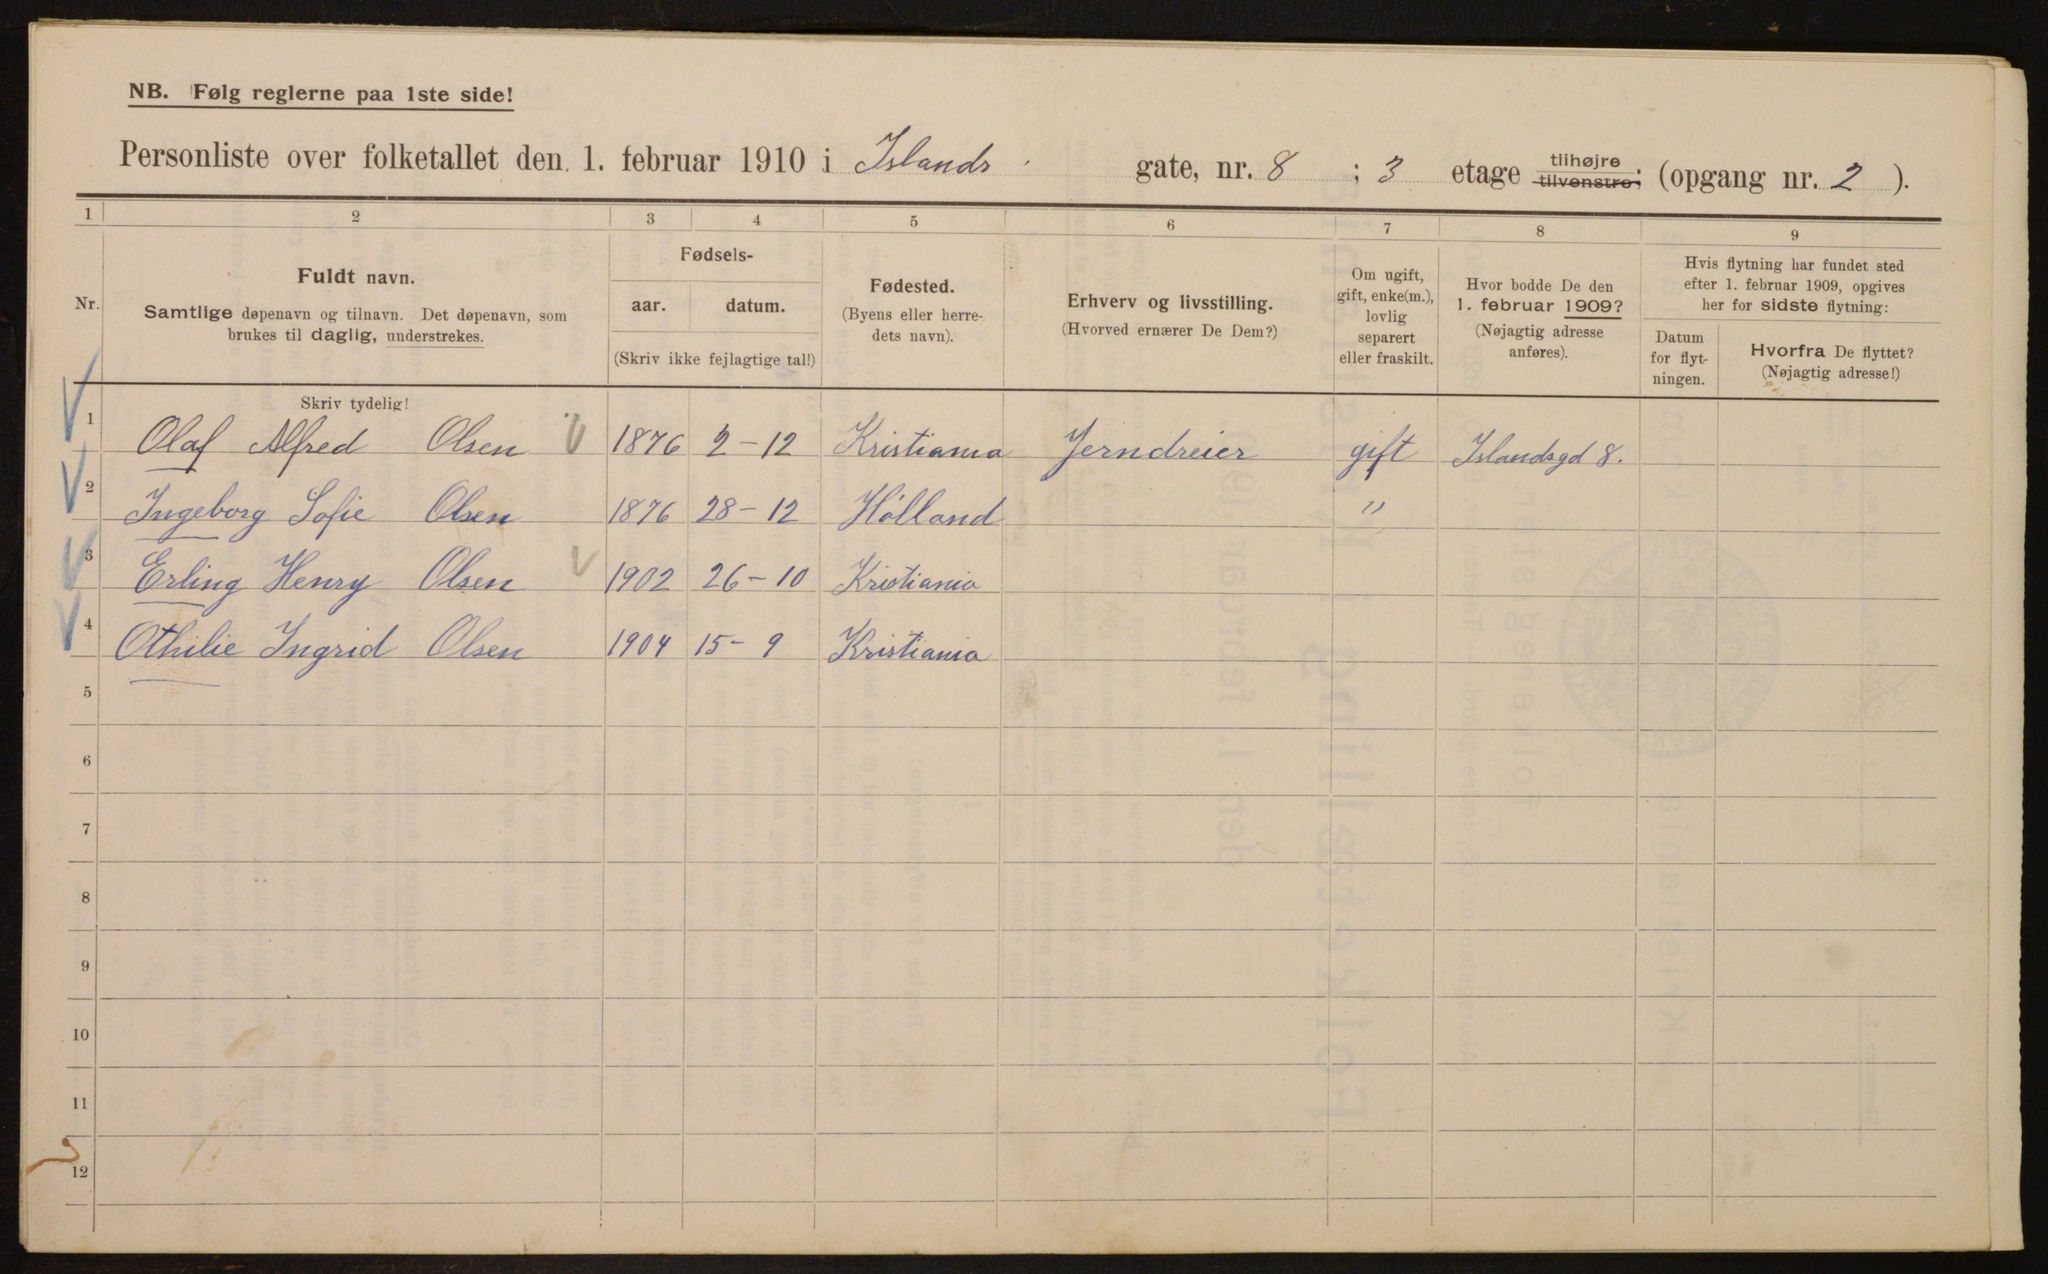 NB. Følg reglerne paa 1ste side!
Personliste over folketallet den 1. februar 1910 i Islands gate, nr. 8 ; 3 etage tilhøjre tilvenstre; (opgang nr. 2 ).
1 2 3 4 5 6 7 8 9
Nr.
Fuldt navn.
Samtlige døpenavn og tilnavn. Det døpenavn, som
brukes til daglig, understrekes.
Fødsels-
aar. datum.
(Skriv ikke fejlagtige tal!)
Fødested.
(Byens eller herre-
dets navn).
Erhverv og livsstilling.
(Hvorved ernærer De Dem?)
Om ugift,
gift, enke(m.),
lovlig
separert
eller fraskilt.
Hvor bodde De den
1. februar 1909?
(Nøjagtig adresse
anføres).
Hvis flytning har fundet sted
efter 1. februar 1909, opgives
her for sidste flytning:
Datum
for flyt-
ningen.
Hvorfra De flyttet?
(Nøjagtig adresse!)
Skriv tydelig!
1 Olaf Alfred Olsen 1876 2-12 Kristiania Jerndreier gift Islandsgd 8.
2 Ingeborg Sofie Olsen 1876 28-12 Hölland "
3 Erling Henry Olsen 1902 26-10 Kristiania
4 Othilie Ingrid Olsen 1904 15-9 Kristiania
5
6
7
8
9
10
11
12